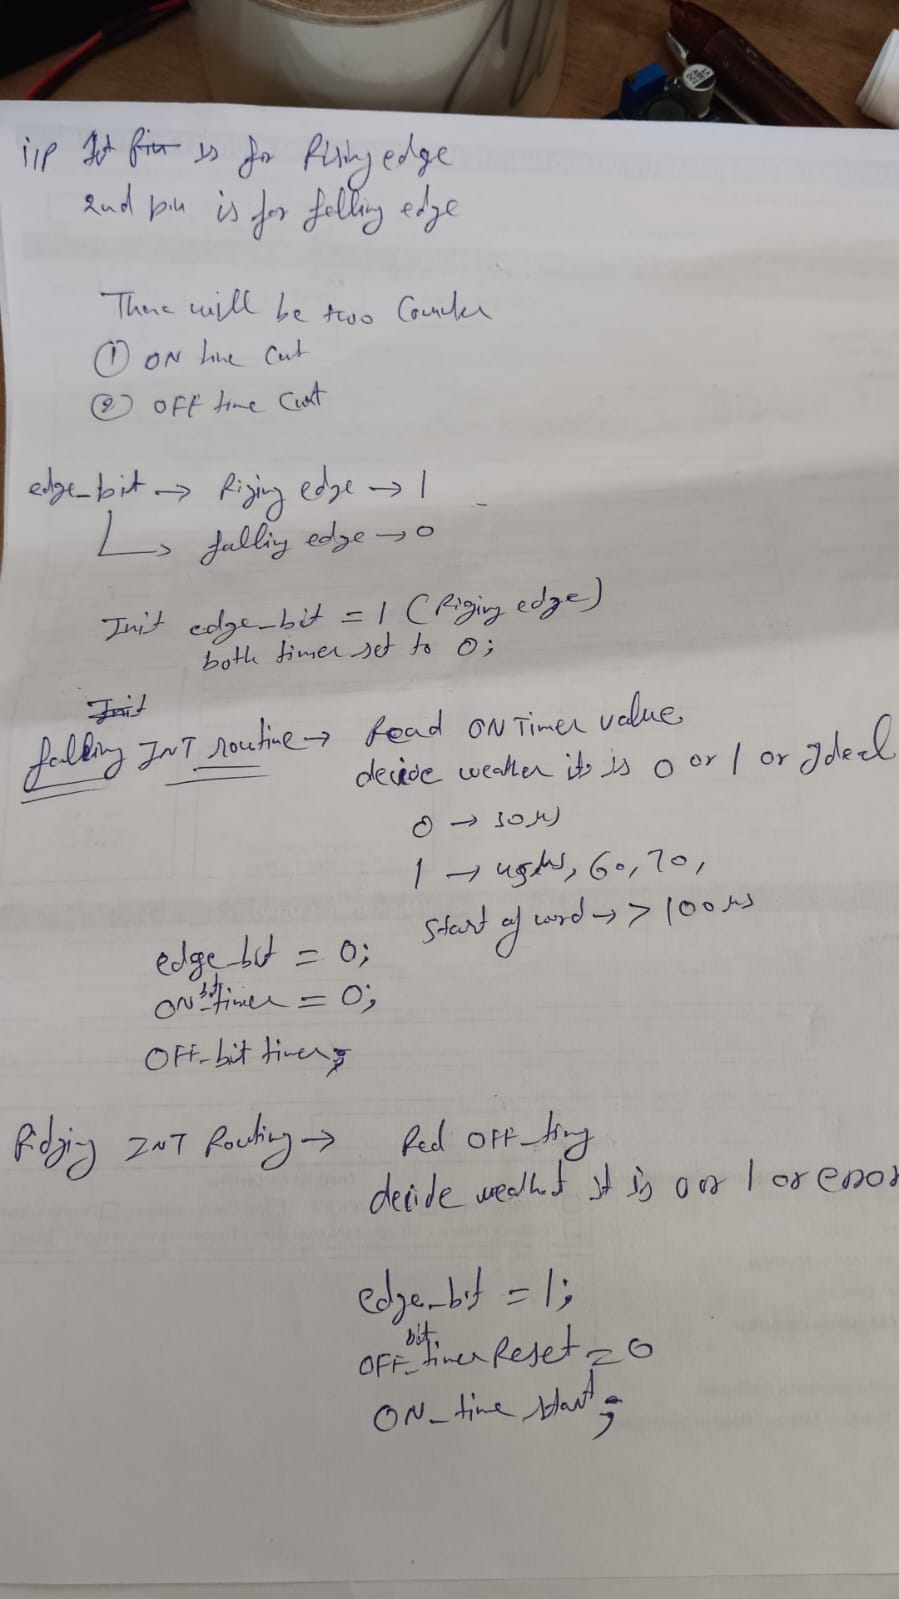 i/p 1st pin is for Rising edge
2nd pin is for falling edge
There will be two Counter
① ON time Cnt
② OFF time Cnt
edge_bit → Rizing edge → 1
↳ falling edge → 0
Init edge_bit = 1 (Rizing edge)
both timer set to 0;
Init
falling INT routine → Read ON Timer value
decide weather its is 0 or 1 or Ideal
0 → 30 μs
1 → 60, 70,
Start of word → > 100 μs
edge_bit = 0;
ON_bit timer = 0;
OFF_bit timer;
INT Routing → Red OFF_
decide it is 0 or 1 or error
edge_bit = 1;
OFF_bit timer Reset = 0
ON_time start;